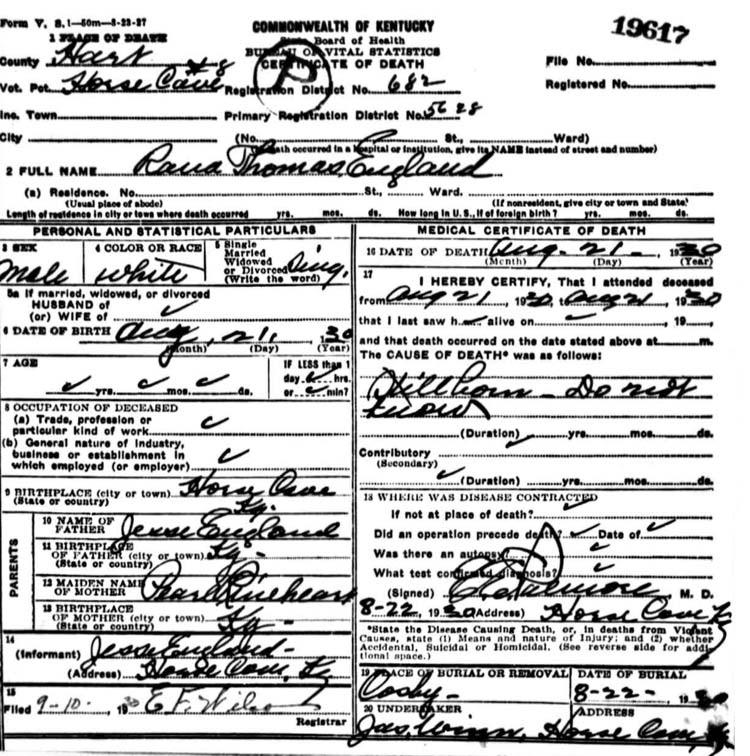 Form V. S. 1—50m—8-23-27
COMMONWEALTH OF KENTUCKY
State Board of Health
BUREAU OF VITAL STATISTICS
CERTIFICATE OF DEATH
19617
1 PLACE OF DEATH
County Hart
Vot. Pct. Horse Cave
Inc. Town
City
Registration District No. 682
Primary Registration District No. 5628
File No.
Registered No.
(No. St., Ward)
(If death occurred in a hospital or institution, give its NAME instead of street and number)
P
2 FULL NAME Thomas England
(a) Residence. No. St., Ward.
(Usual place of abode) (If nonresident, give city or town and State)
Length of residence in city or town where death occurred yrs. mos. ds. How long in U. S., if of foreign birth? yrs. mos. ds.
PERSONAL AND STATISTICAL PARTICULARS
3 SEX
Male
4 COLOR OR RACE
White
5 Single
Married
Widowed
or Divorced
(Write the word)
Sing.
5a If married, widowed, or divorced
HUSBAND of
(or) WIFE of ✓
6 DATE OF BIRTH Aug. 21, 1930
(Month) (Day) (Year)
7 AGE
✓ yrs. ✓ mos. ✓ ds.
IF LESS than 1
day ✓ hrs.
or ✓ min?
8 OCCUPATION OF DECEASED
(a) Trade, profession or
particular kind of work ✓
(b) General nature of industry,
business or establishment in
which employed (or employer) ✓
9 BIRTHPLACE (city or town) Horse Cave
(State or country) Ky.
PARENTS
10 NAME OF
FATHER Jesse England
11 BIRTHPLACE
OF FATHER (city or town) Ky-
(State or country)
12 MAIDEN NAME
OF MOTHER Pearl Rineheart
13 BIRTHPLACE
OF MOTHER (city or town)
(State or country) Ky-
14
(Informant) Jesse England-
(Address) Horse Cave, Ky
15
Filed 9-10- 1930 E. F. Wilson
Registrar
MEDICAL CERTIFICATE OF DEATH
16 DATE OF DEATH Aug. 21- 1930
(Month) (Day) (Year)
17
I HEREBY CERTIFY, That I attended deceased
from Aug 21, 1930 to Aug 21 1930
that I last saw h ✓ alive on ✓, 19
and that death occurred on the date stated above at m.
The CAUSE OF DEATH* was as follows:
Stillborn - Do not
know
(Duration) yrs. mos. ds.
Contributory ✓
(Secondary)
✓ (Duration) yrs. mos. ds.
18 WHERE WAS DISEASE CONTRACTED
If not at place of death? ✓
Did an operation precede death? ✓ Date of ✓
Was there an autopsy? ✓
What test confirmed diagnosis? ✓
(Signed) M. D.
8-22, 1930 (Address) Horse Cave K
*State the Disease Causing Death, or, in deaths from Violent
Causes, state (1) Means and nature of Injury; and (2) whether
Accidental, Suicidal or Homicidal. (See reverse side for addi-
tional space.)
19 PLACE OF BURIAL OR REMOVAL
Cosby-
DATE OF BURIAL
8-22- 1930
20 UNDERTAKER
Jas. Winn,
ADDRESS
Horse Cave, Ky